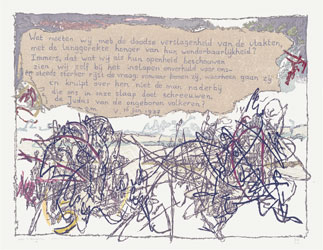 Wat moeten wij met de doodse verslagenheid van de vlakten,
met de langgerekte honger van hun wonderbaarlijkheid?
Immers, dat wat wij als hun openheid beschouwen,
zien wij zelf bij het inslapen onverhoeds voor ons:
steeds sterker rijst de vraag: vanwaar komen zij, waarheen gaan zij
en kruipt over hen niet de man nader bij
die ons in onze slaap doet schreeuwen,
de Judas van de ongeboren volkeren?